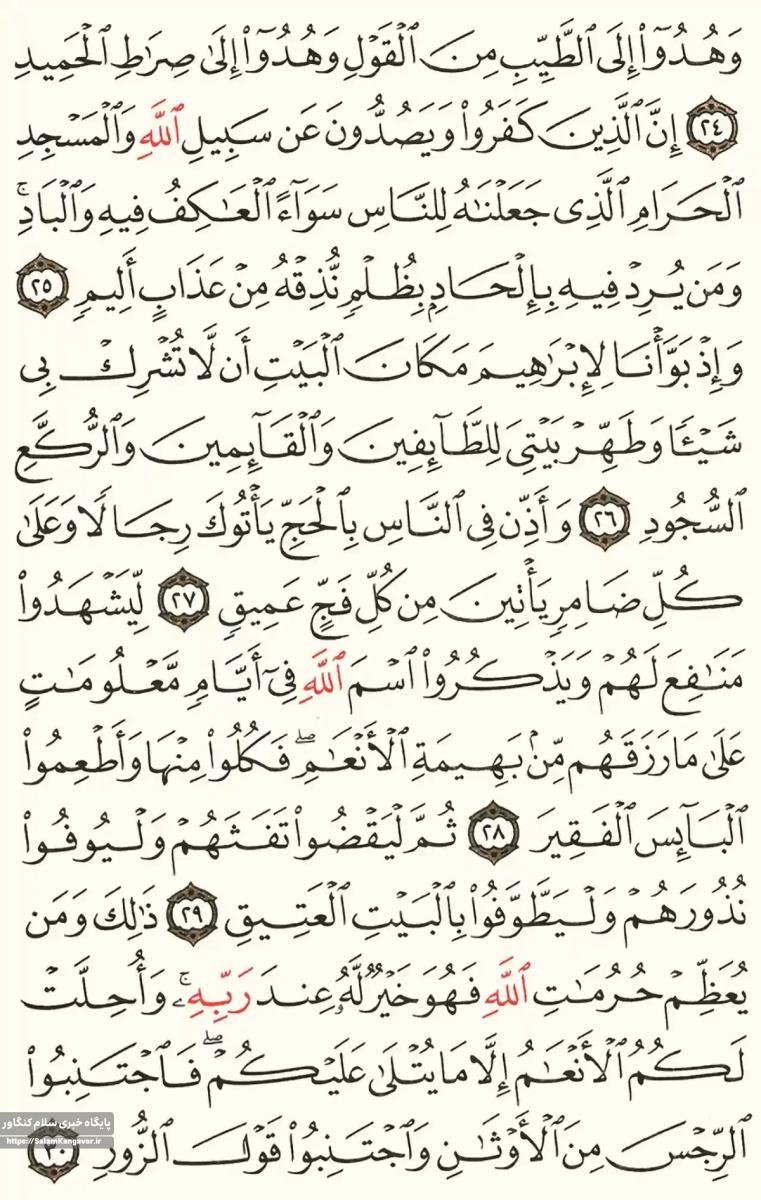 وَهُدُوٓا۟ إِلَى ٱلطَّيِّبِ مِنَ ٱلْقَوْلِ وَهُدُوٓا۟ إِلَىٰ صِرَٰطِ ٱلْحَمِيدِ
﴿٢٤﴾ إِنَّ ٱلَّذِينَ كَفَرُوا۟ وَيَصُدُّونَ عَن سَبِيلِ ٱللَّهِ وَٱلْمَسْجِدِ
ٱلْحَرَامِ ٱلَّذِى جَعَلْنَٰهُ لِلنَّاسِ سَوَآءً ٱلْعَٰكِفُ فِيهِ وَٱلْبَادِ ۚ
وَمَن يُرِدْ فِيهِ بِإِلْحَادٍۭ بِظُلْمٍ نُّذِقْهُ مِنْ عَذَابٍ أَلِيمٍ ﴿٢٥﴾
وَإِذْ بَوَّأْنَا لِإِبْرَٰهِيمَ مَكَانَ ٱلْبَيْتِ أَن لَّا تُشْرِكْ بِى
شَيْـًٔا وَطَهِّرْ بَيْتِىَ لِلطَّآئِفِينَ وَٱلْقَآئِمِينَ وَٱلرُّكَّعِ
ٱلسُّجُودِ ﴿٢٦﴾ وَأَذِّن فِى ٱلنَّاسِ بِٱلْحَجِّ يَأْتُوكَ رِجَالًا وَعَلَىٰ
كُلِّ ضَامِرٍ يَأْتِينَ مِن كُلِّ فَجٍّ عَمِيقٍ ﴿٢٧﴾ لِّيَشْهَدُوا۟
مَنَٰفِعَ لَهُمْ وَيَذْكُرُوا۟ ٱسْمَ ٱللَّهِ فِىٓ أَيَّامٍ مَّعْلُومَٰتٍ
عَلَىٰ مَا رَزَقَهُم مِّنۢ بَهِيمَةِ ٱلْأَنْعَٰمِ ۖ فَكُلُوا۟ مِنْهَا وَأَطْعِمُوا۟
ٱلْبَآئِسَ ٱلْفَقِيرَ ﴿٢٨﴾ ثُمَّ لْيَقْضُوا۟ تَفَثَهُمْ وَلْيُوفُوا۟
نُذُورَهُمْ وَلْيَطَّوَّفُوا۟ بِٱلْبَيْتِ ٱلْعَتِيقِ ﴿٢٩﴾ ذَٰلِكَ وَمَن
يُعَظِّمْ حُرُمَٰتِ ٱللَّهِ فَهُوَ خَيْرٌ لَّهُۥ عِندَ رَبِّهِۦ ۗ وَأُحِلَّتْ
لَكُمُ ٱلْأَنْعَٰمُ إِلَّا مَا يُتْلَىٰ عَلَيْكُمْ ۖ فَٱجْتَنِبُوا۟
ٱلرِّجْسَ مِنَ ٱلْأَوْثَٰنِ وَٱجْتَنِبُوا۟ قَوْلَ ٱلزُّورِ ﴿٣٠﴾
پایگاه خبری سلام کنگاور
https://SalamKangavar.ir